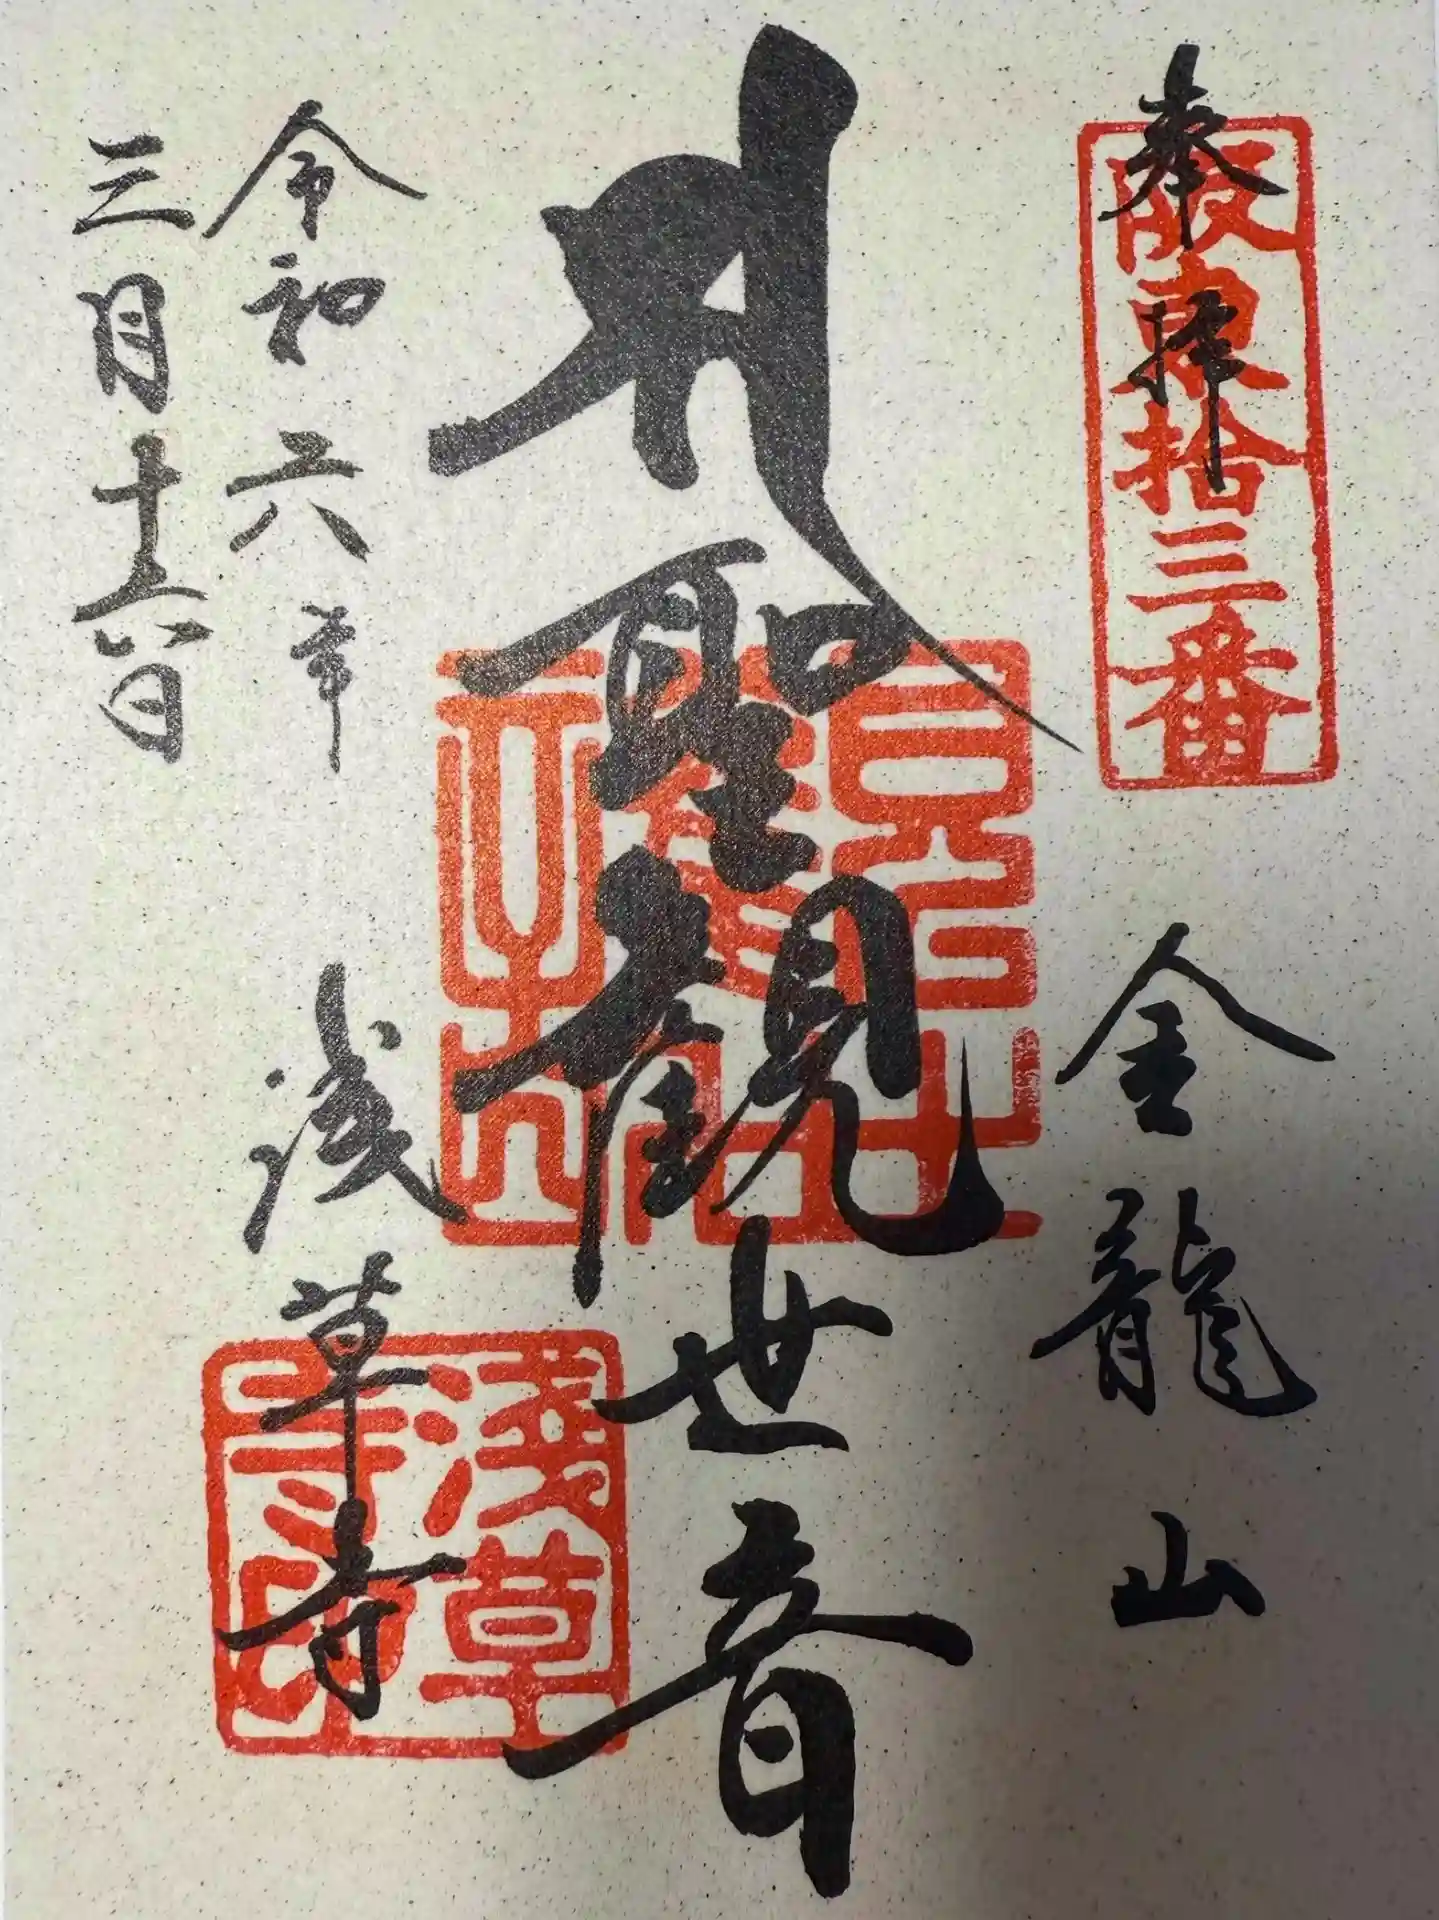 奉拝
阪東拾三番
金龍山
聖観世音
令和六年
三月十六日
浅草寺
淺草寺印